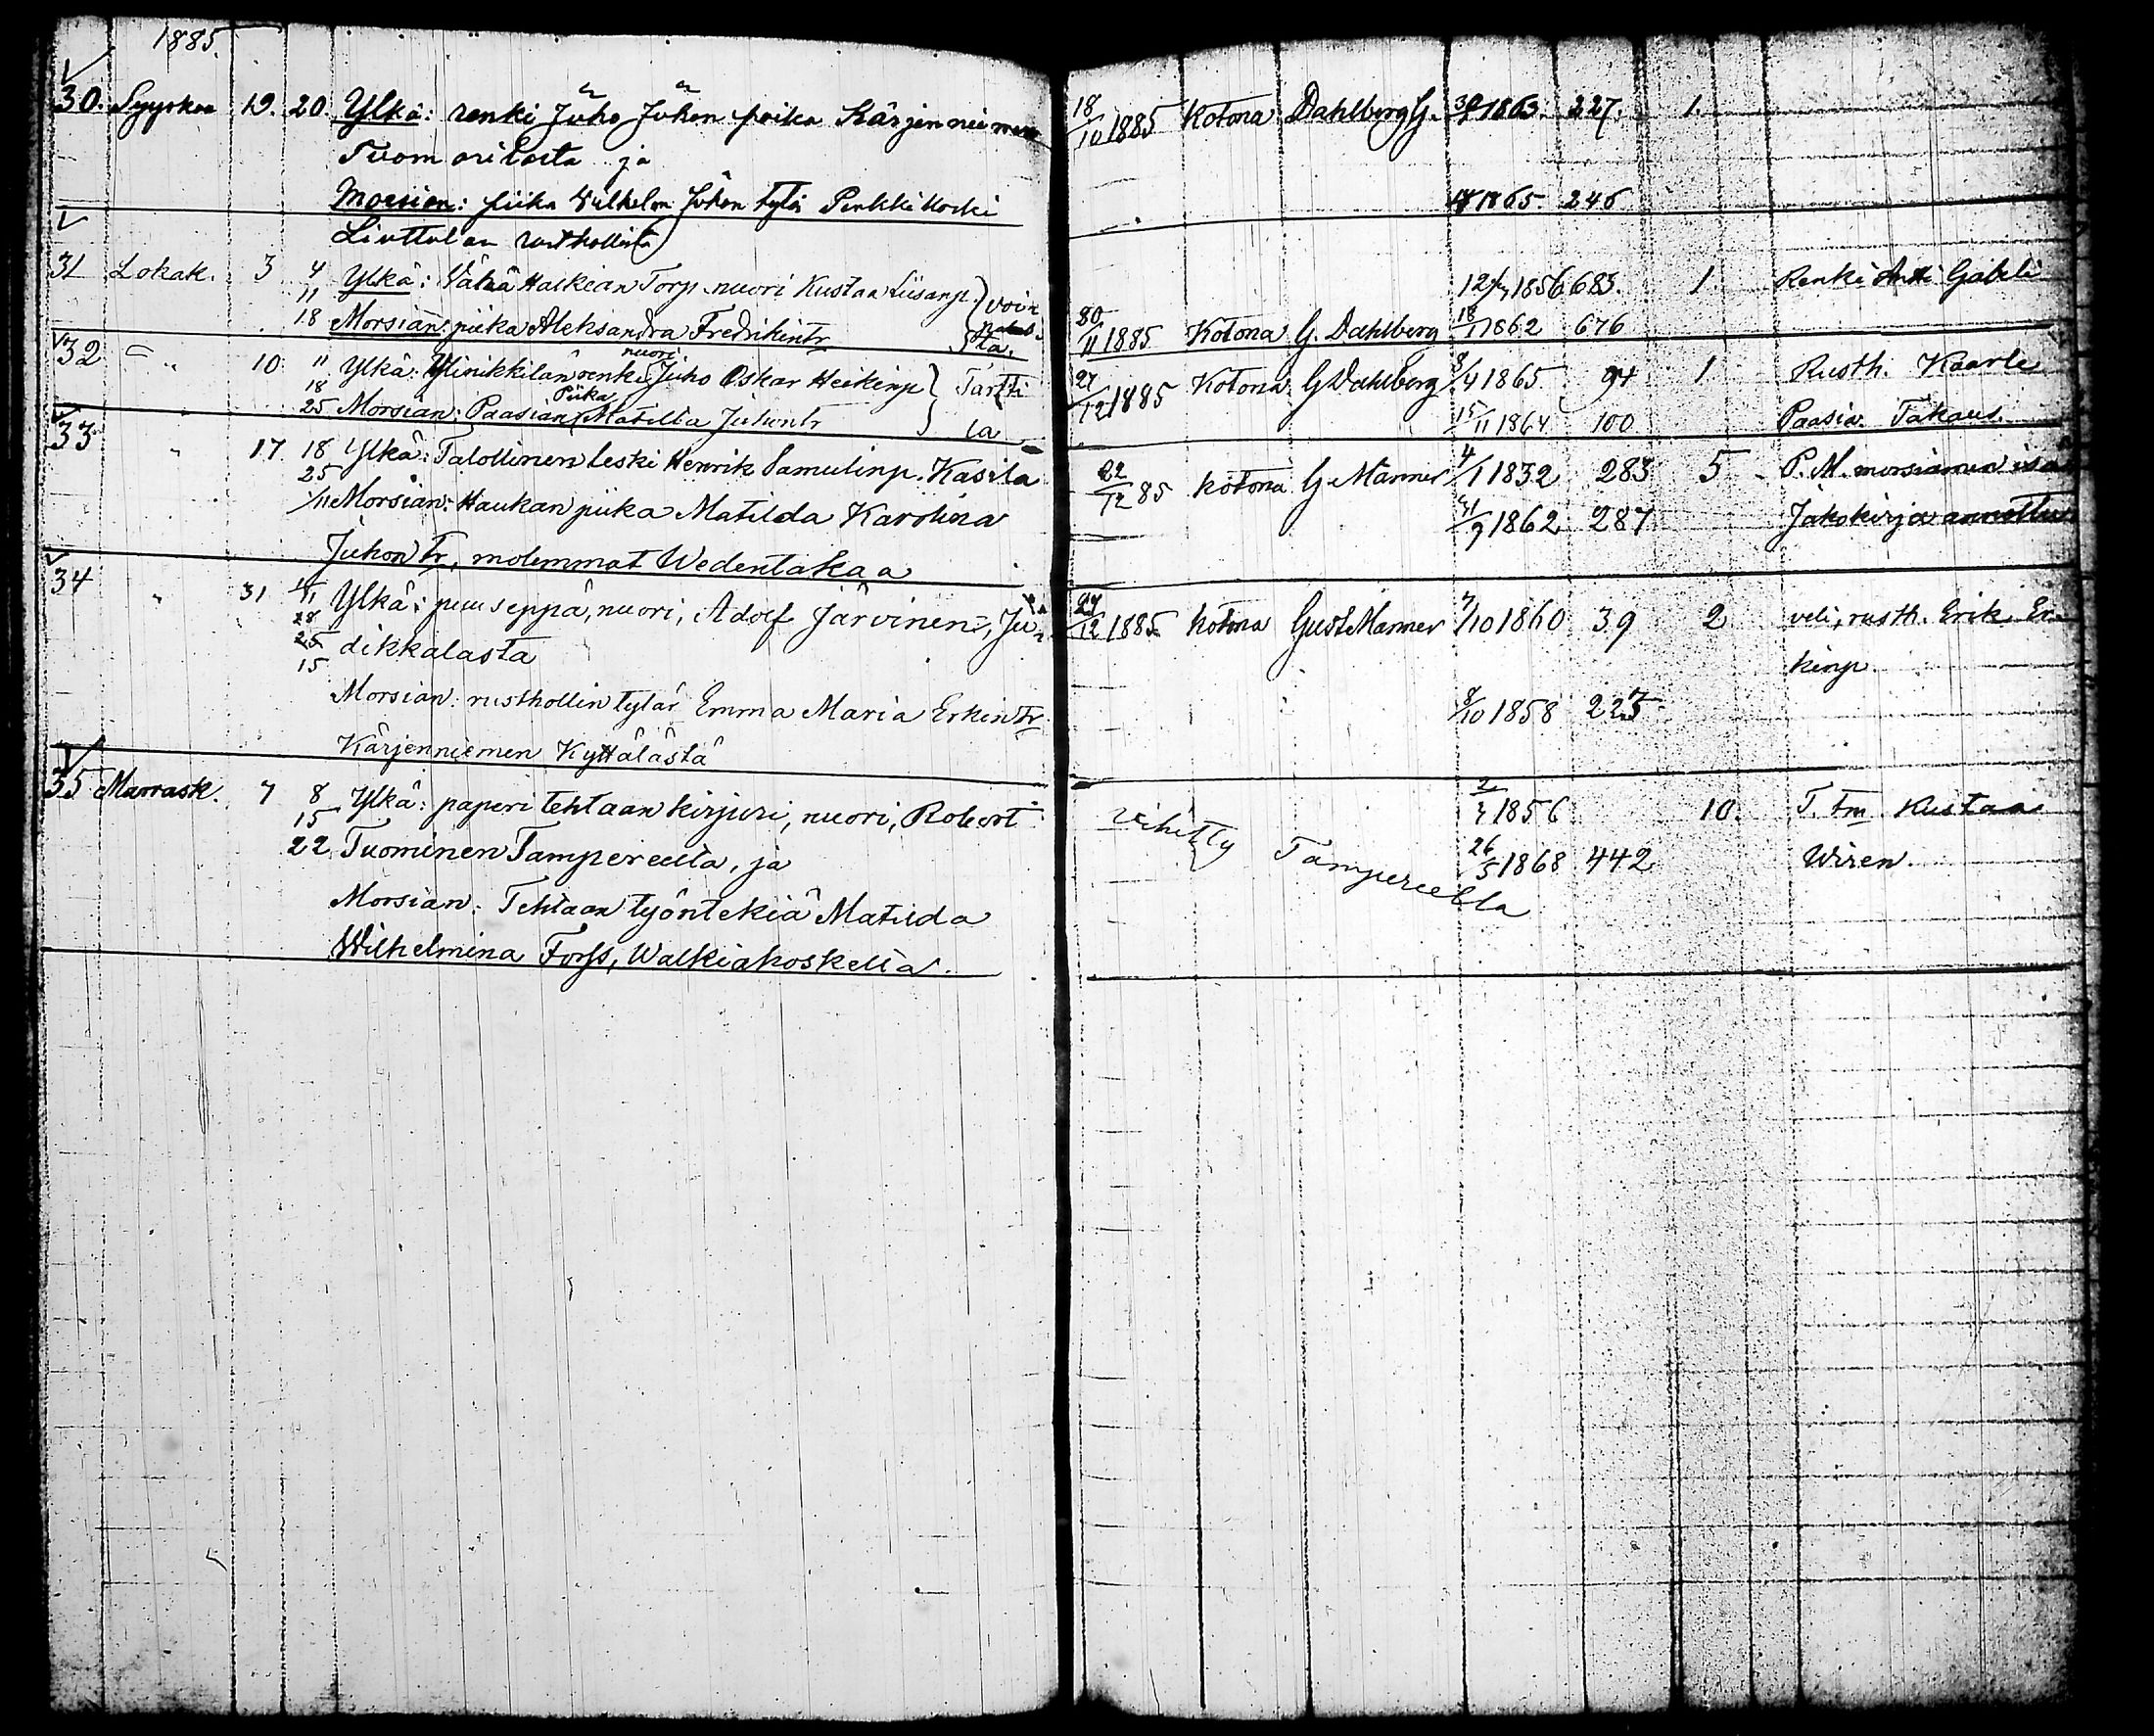 1885.
30. Syysk 19. 20 Ylkä: renki Juho Juhon poika Kärjenniemen
Tuomarilasta ja
Morsian: piika Wilhelm Juhon tytär Penkkikoski
Liuttulan rusthollista
31 Lokak. 3 4 Ylkä: Vähä Haikian Torp. nuori Kustaa Liisanp.
11
18 Morsian: piika Aleksandra Fredrikintr ta.
32 " 10 11 Ylkä: Ylinikkilän renki nuori Juho Oskar Heikinp Tartti
18
25 Morsian: Paasian Piika Matilda Juhontr la
33 " 17 18 Ylkä: Talollinen leski Henrik Samulinp. Kasila
25
1/11 Morsian: Haukan piika Matilda Karolina
Juhon tr, molemmat Wedentakaa
34 " 31 1/11 Ylkä: puuseppä, nuori, Adolf Järvinen, Ju-
28
25 dikkalasta
15
Morsian: rusthollin tytär Emma Maria Erkintr
Kärjenniemen Kyttälästä
35 Marrask. 7 8 Ylkä: paperitehtaan kirjuri, nuori, Robert
15
22 Tuominen Tampereelta, ja
Morsian: Tehtaan työntekiä Matilda
Wilhelmina Forss, Walkiakoskelta.
18/10 1885 Kotona Dahlberg G. 1863. 227. 1.
1865 246
1856 683. 1 Renki Antti
30/11 1885 Kotona G. Dahlberg 18/1 1862 676
27/12 1885 Kotona G Dahlberg 8/4 1865 94 1 Rusth. Kaarle
15/11 1864 100 Paasia Takaus.
22/12 85 kotona G Manner 4/1 1832 283 5 P. M. morsiamen isä
/9 1862 287 Jakokirja annettu
27/12 1885 kotona Gust Manner 7/10 1860 39 2 veli, rusth. Erik Er-
kinp.
8/10 1858 225
1856 10. T. Tm Kustaa
Vihitty Tampereella 26/5 1868 442 Wiren.